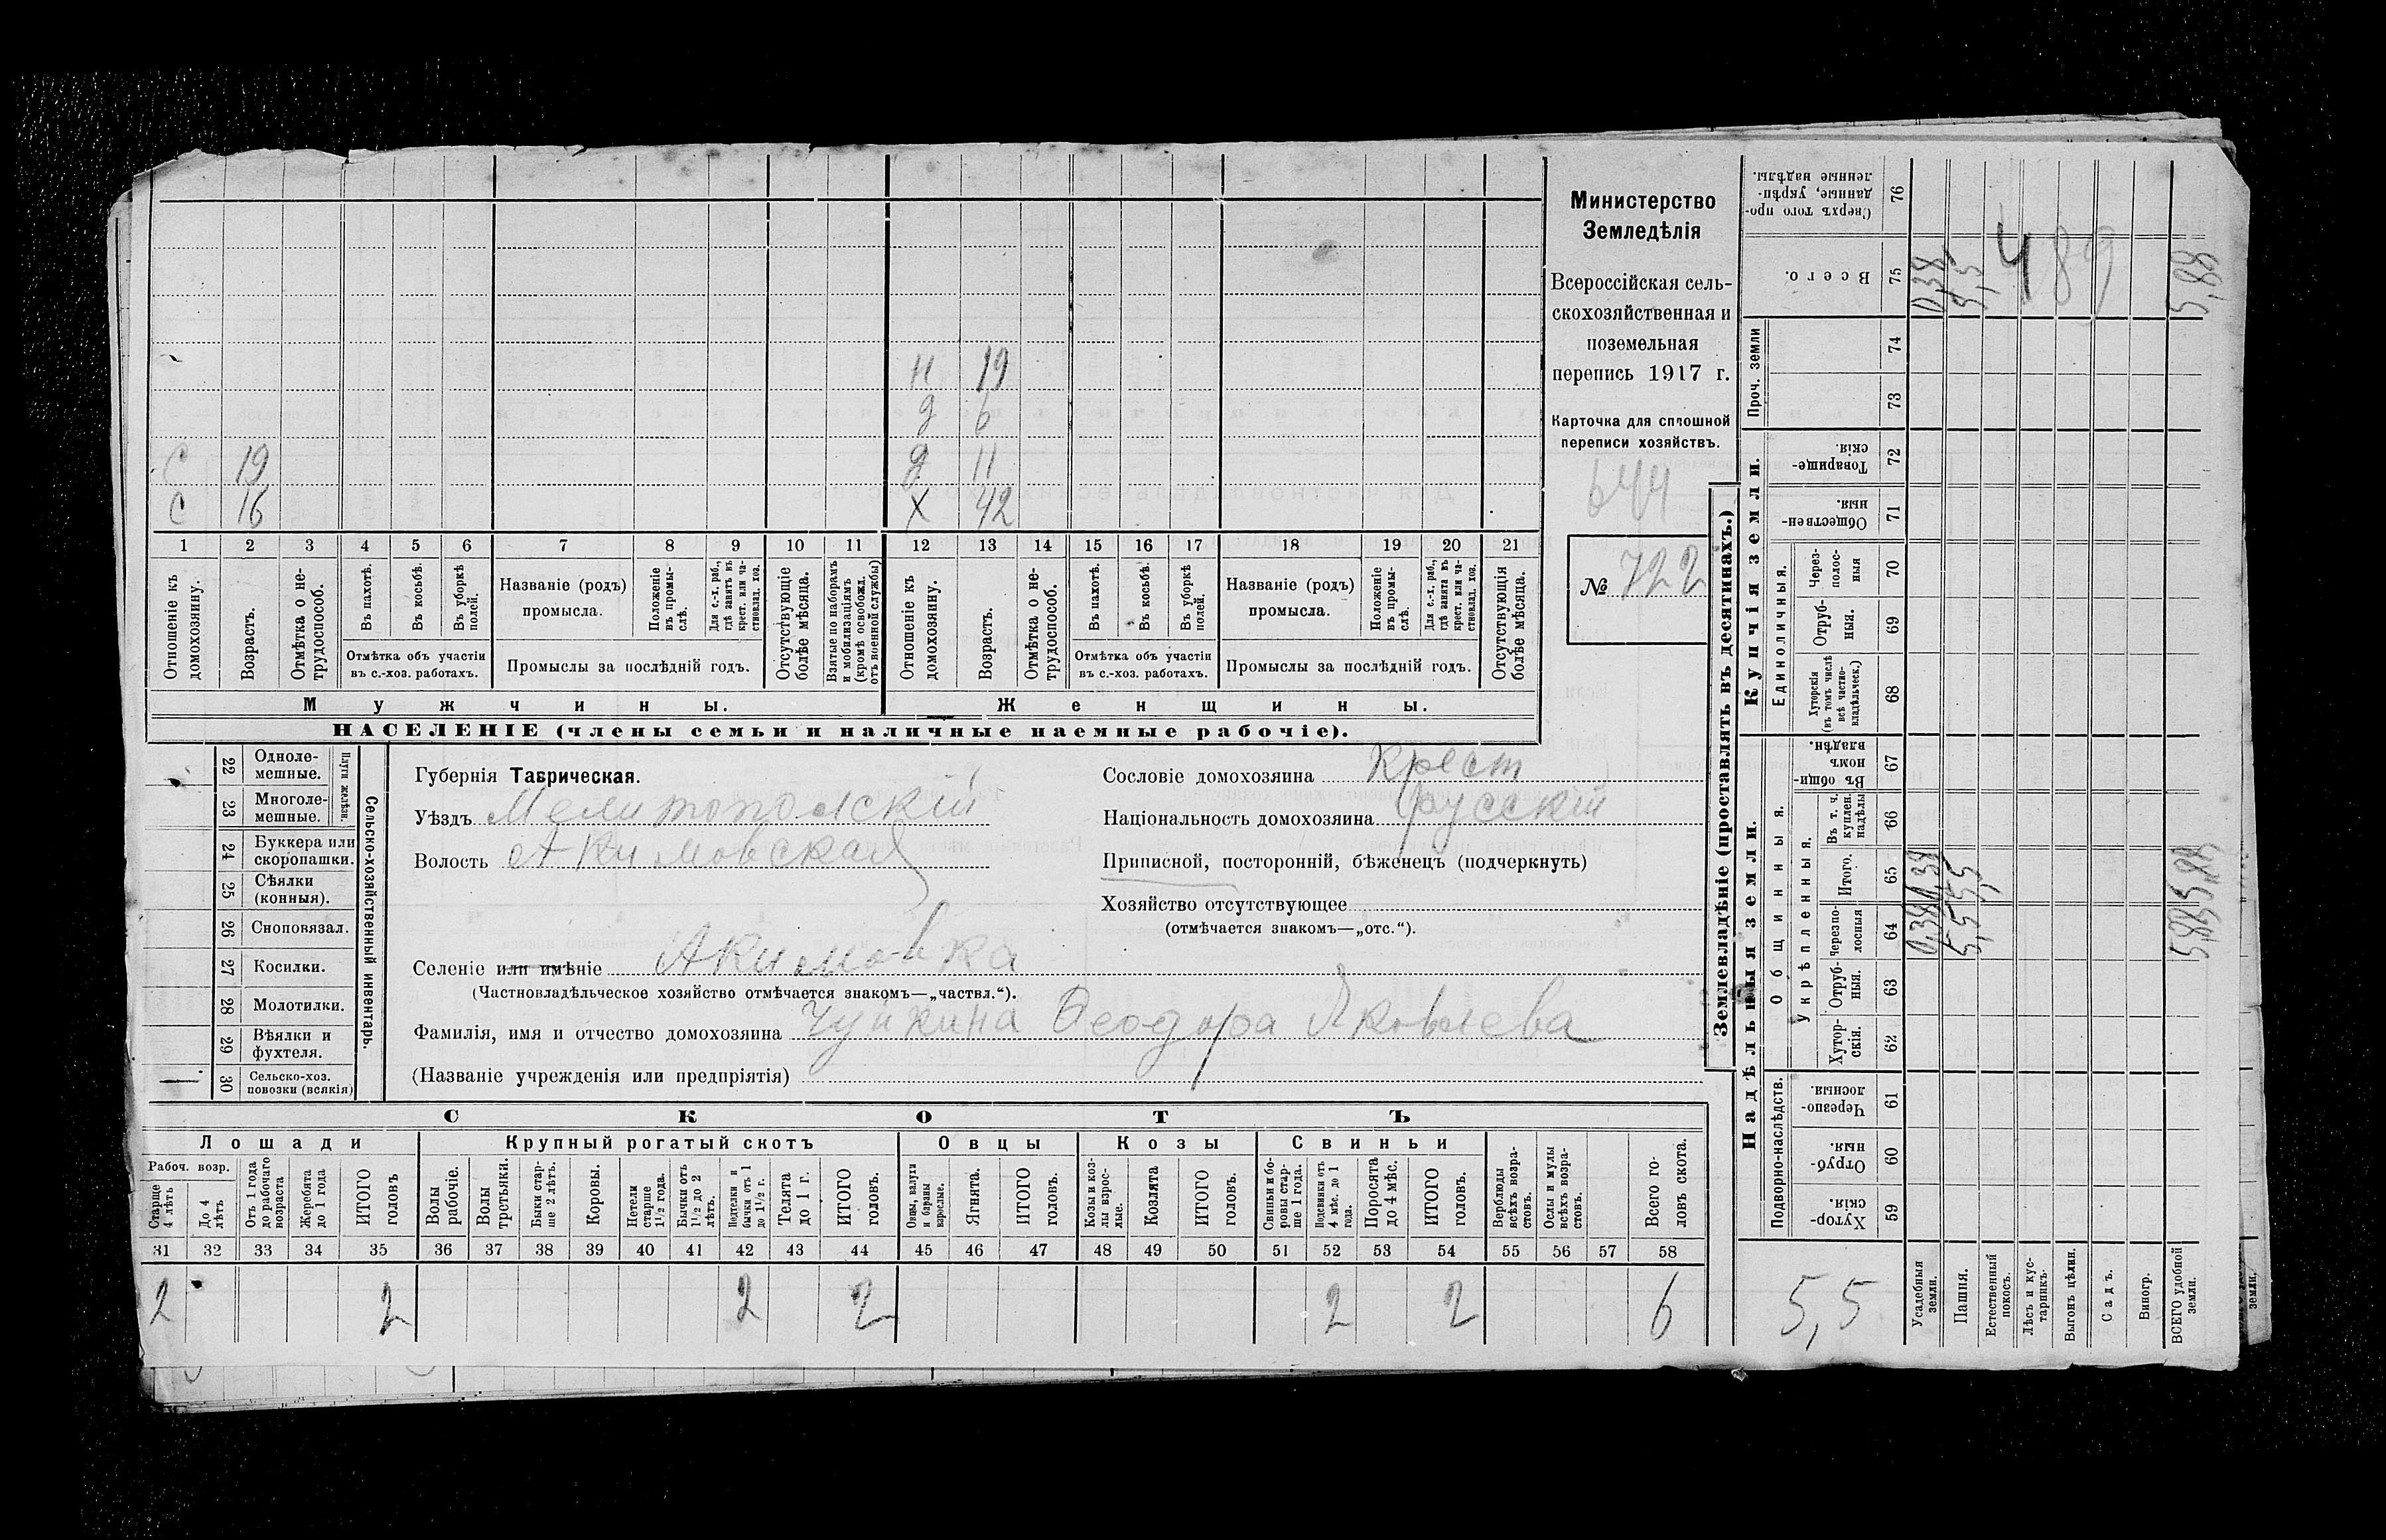 Министерство
Земледѣлія
Всероссійская сель-
скохозяйственная и
поземельная
перепись 1917 г.
Карточка для сплошной
переписи хозяйствъ.
644
№ 722
н 19
д 6
с 19 д 11
с 16 х 42
1 2 3 4 5 6 7 8 9 10 11 12 13 14 15 16 17 18 19 20 21
Отношеніе къ домохозяину.
Возрастъ.
Отмѣтка о не-трудоспособ.
Въ пахотѣ.
Въ косьбѣ.
Въ уборкѣ полей.
Отмѣтка объ участіи
въ с.-хоз. работахъ.
Названіе (родъ)
промысла.
Положеніе въ промы-слѣ.
Для с.-х. раб., гдѣ занятъ въ крест. или ча-стновлад. хоз.
Промыслы за послѣдній годъ.
Отсутствующіе болѣе мѣсяца.
Взятые по наборамъ и мобилизаціямъ (кромѣ освобожд. отъ военной службы)
Отношеніе къ домохозяину.
Возрастъ.
Отмѣтка о не-трудоспособ.
Въ пахотѣ.
Въ косьбѣ.
Въ уборкѣ полей.
Отмѣтка объ участіи
въ с.-хоз. работахъ.
Названіе (родъ)
промысла.
Положеніе въ промы-слѣ.
Для с.-х. раб., гдѣ занятъ въ крест. или ча-стновлад. хоз.
Промыслы за послѣдній годъ.
Отсутствующія болѣе мѣсяца.
Мужчины. Женщины.
НАСЕЛЕНІЕ (члены семьи и наличные наемные рабочіе).
22 Одноле-мешные.
23 Многоле-мешные.
Плуги желѣзн.
24 Буккера или скоропашки.
25 Сѣялки (конныя).
26 Сноповязал.
27 Косилки.
28 Молотилки.
29 Вѣялки и фухтеля.
30 Сельско-хоз. повозки (всякія)
Сельско-хозяйственный инвентарь.
Губернія Таврическая.
Уѣздъ Мелитопольскій
Волость Акимовская
Сословіе домохозяина крест
Національность домохозяина русскій
Приписной, посторонній, бѣженецъ (подчеркнуть)
Хозяйство отсутствующее
(отмѣчается знакомъ—„отс.“).
Селеніе или имѣніе Акимовка
(Частновладѣльческое хозяйство отмѣчается знакомъ—„частвл.“).
Фамилія, имя и отчество домохозяина Чуйкина Ѳеодора Яковлева
(Названіе учрежденія или предпріятія)
СКОТЪ
Лошади Крупный рогатый скотъ Овцы Козы Свиньи
Рабоч. возр.
Старше 4 лѣтъ
До 4 лѣтъ
Отъ 1 года до рабочаго возраста
Жеребята до 1 года
ИТОГО головъ
Волы рабочіе.
Волы третьяки.
Быки стар-ше 2 лѣтъ.
Коровы.
Нетели старше 1½ года.
Бычки отъ 1½ до 2 лѣтъ.
Подтелки и бычки отъ 1 до 1½ г.
Телята до 1 г.
ИТОГО головъ.
Овцы, валухи и бараны взрослые.
Ягнята.
ИТОГО головъ.
Козы и коз-лы взрос-лые.
Козлята
ИТОГО головъ.
Свиньи и бо-ровы стар-ше 1 года.
Подсвинки отъ 4 мѣс. до 1 года.
Поросята до 4 мѣс.
ИТОГО головъ.
Верблюды всѣхъ возра-стовъ.
Ослы и мулы всѣхъ возра-стовъ.
Всего го-ловъ скота.
31 32 33 34 35 36 37 38 39 40 41 42 43 44 45 46 47 48 49 50 51 52 53 54 55 56 57 58
2 2 2 2 2 2 6
Землевладѣніе (проставлять въ десятинахъ.)
Надѣльныя земли. Купчія земли. Проч. земли
Подворно-наслѣдств.
Общинныя.
Укрѣпленныя.
Единоличныя.
76 Сверхъ того про-данные, укрѣп-ленные надѣлы.
75 Всего. 0,38 5,5 5,88
489
74
73
72 Товарище-скія.
71 Обществен-ныя.
70 Через-полос-ныя
69 Отруб-ныя.
68 Хуторскія (въ томъ числѣ всѣ частно-владѣльческ.)
67 Въ общи-номъ владѣн.
66 Въ т. ч. куплен. надѣлы
65 Итого. 0,38 5,5 5,88
64 Черезпо-лосныя 0,38 5,5 5,88
63 Отруб-ныя.
62 Хутор-скія.
61 Черезпо-лосныя.
60 Отруб-ныя.
59 Хутор-скія.
5,5
Усадебныя земли.
Пашня.
Естественный покосъ.
Лѣсъ и кус-тарникъ.
Выгонъ цѣлин.
Садъ.
Виногр.
ВСЕГО удобной земли.
земли.